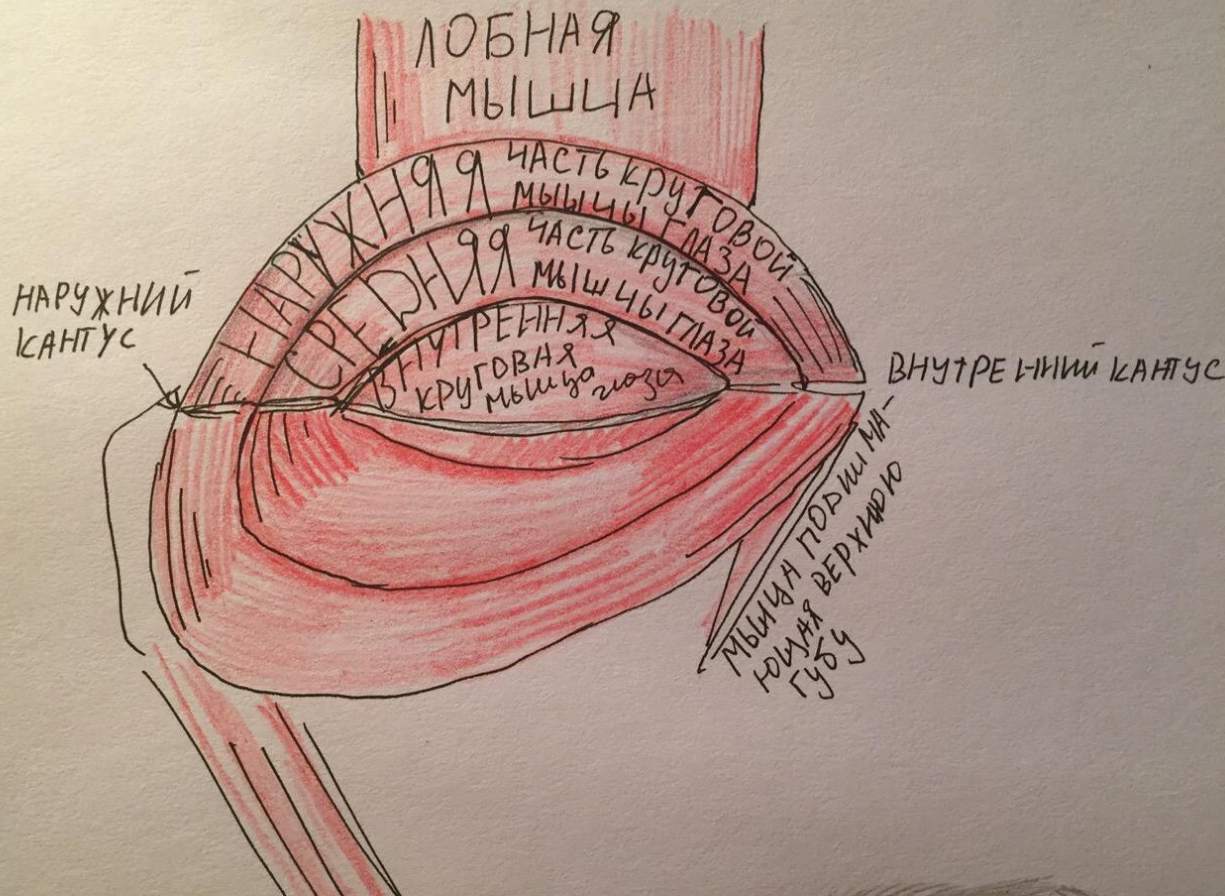 ЛОБНАЯ
МЫШЦА
НАРУЖНЯЯ ЧАСТЬ КРУГОВОЙ
МЫШЦЫ ГЛАЗА
СРЕДНЯЯ ЧАСТЬ КРУГОВОЙ
МЫШЦЫ ГЛАЗА
ВНУТРЕННЯЯ
КРУГОВАЯ
МЫШЦА ГЛАЗА
НАРУЖНИЙ
КАНТУС
ВНУТРЕННИЙ КАНТУС
МЫШЦА ПОДНИМА-
ЮЩАЯ ВЕРХНЮЮ
ГУБУ